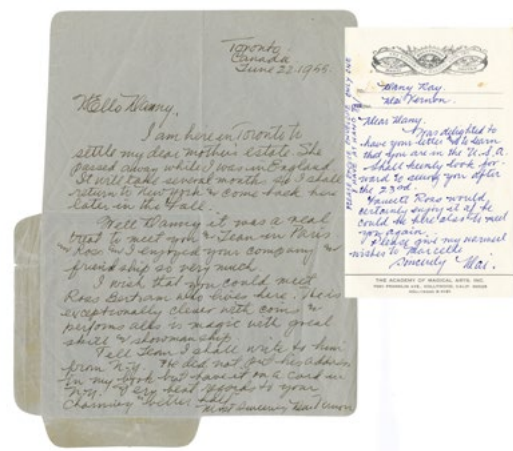 Toronto
Canada
June 22. 1955.
Hello Danny,
I am here in Toronto to
settle my dear mother's estate. She
passed away while I was in England.
It will take several months. So I shall
return to New York & come back here
later in the Fall.
Well Danny it was a real
treat to meet you & Jean in Paris
Ross & I enjoyed your company &
friendship so very much.
I wish that you could meet
Ross Bertram who lives here. He is
exceptionally clever with coins &
performs also magic with great
skill & showmanship.
Tell Jean I shall write to him
from N.Y. He did not put his address
in my book but have it on a card in
N.Y. best regards to your
charming "better half"
Most Sincerely Dai Vernon
Many Ray,
Dai Vernon.
Dear Many.
Was delighted to
have your letter & to learn
that you are in the U.S.A.
Shall look for-
ward to seeing you after
the 23rd.
Faucett Ross would
certainly enjoy it if he
could be here also to meet
you again.
Please give my warmest
wishes to Marcelle
Sincerely Dai.
THE ACADEMY OF MAGICAL ARTS, INC.
7001 FRANKLIN AVE., HOLLYWOOD, CALIF. 90028